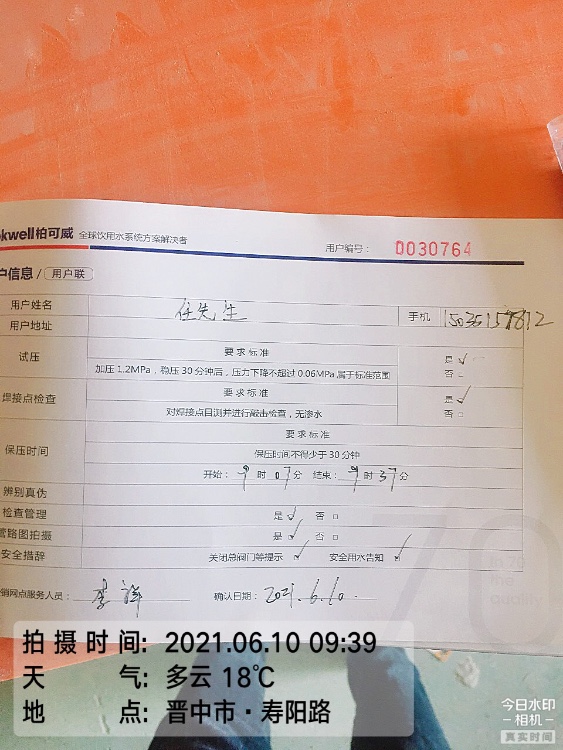 kwell柏可威 全球饮用水系统方案解决者 用户编号： 0030764
户信息 / 用户联
用户姓名 任先生 手机
用户地址
试压 要求标准 是 ✓
加压1.2MPa，稳压30分钟后，压力下降不超过0.06MPa属于标准范围 否 □
焊接点检查 要求标准 是 ✓
对焊接点目测并进行敲击检查，无渗水 否 □
保压时间 要求标准
保压时间不得少于30分钟
开始： 9 时 07 分 结束： 9 时 37 分
辨别真伪
检查管理 是 ✓ 否 □
管路图拍摄 是 ✓ 否 □
安全措辞 关闭总阀门等提示 ✓ 安全用水告知 ✓
销网点服务人员： 李 确认日期： 2021.6.10
70
In 70
the
quality
拍摄时间: 2021.06.10 09:39
天 气: 多云 18℃
地 点: 晋中市·寿阳路
今日水印
-相机-
真实时间